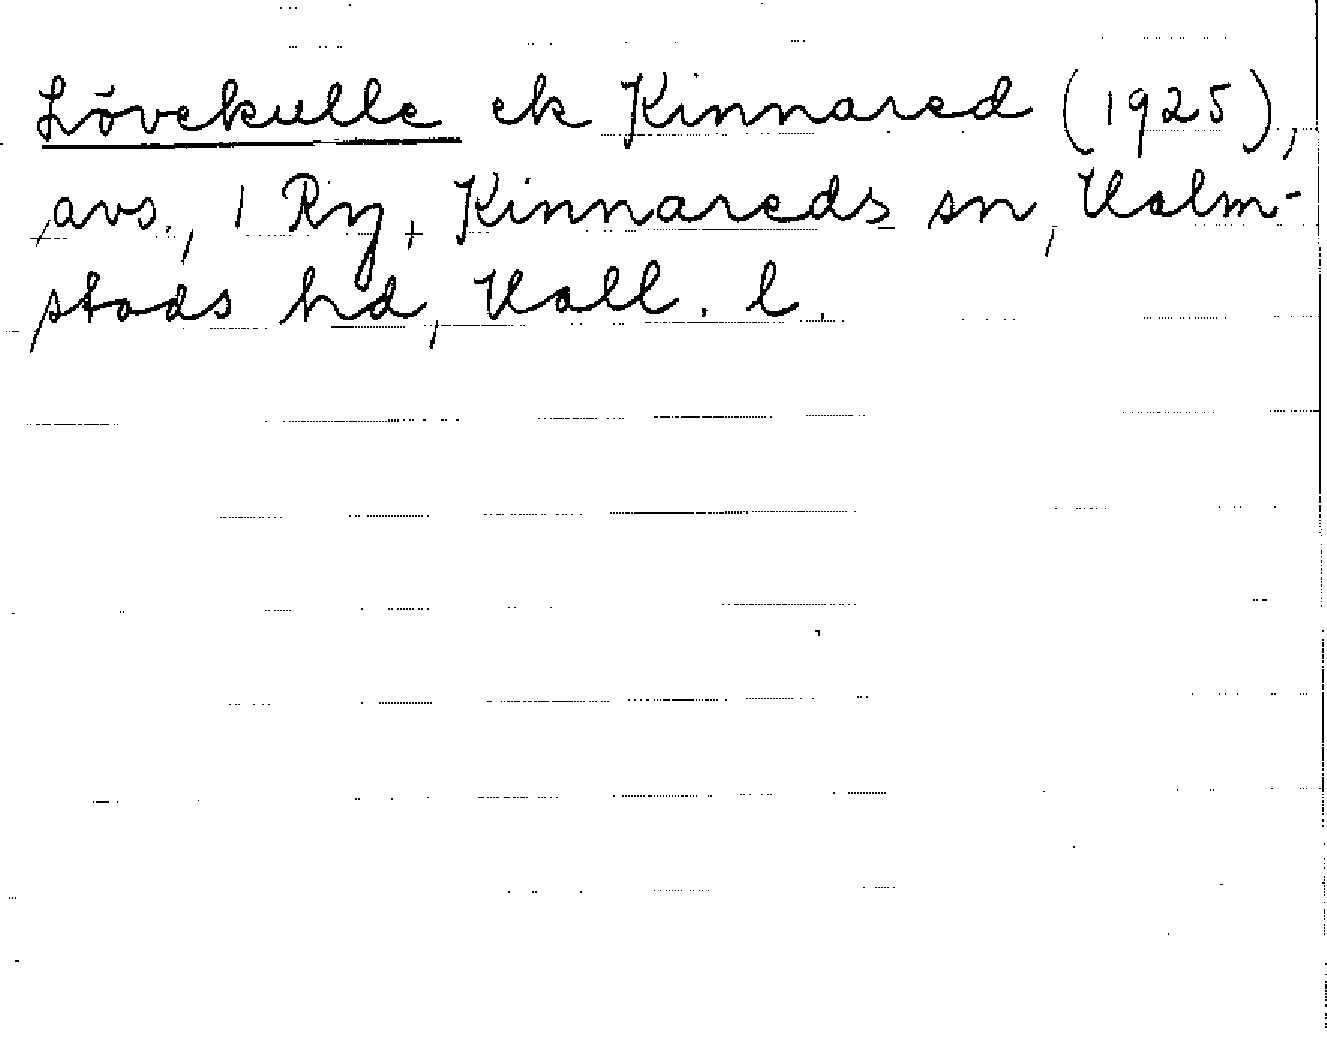 Lövekulle ek Kinnared (1925),
avs., 1 Ry, Kinnareds sn, Halm-
stads hd, Hall. l.